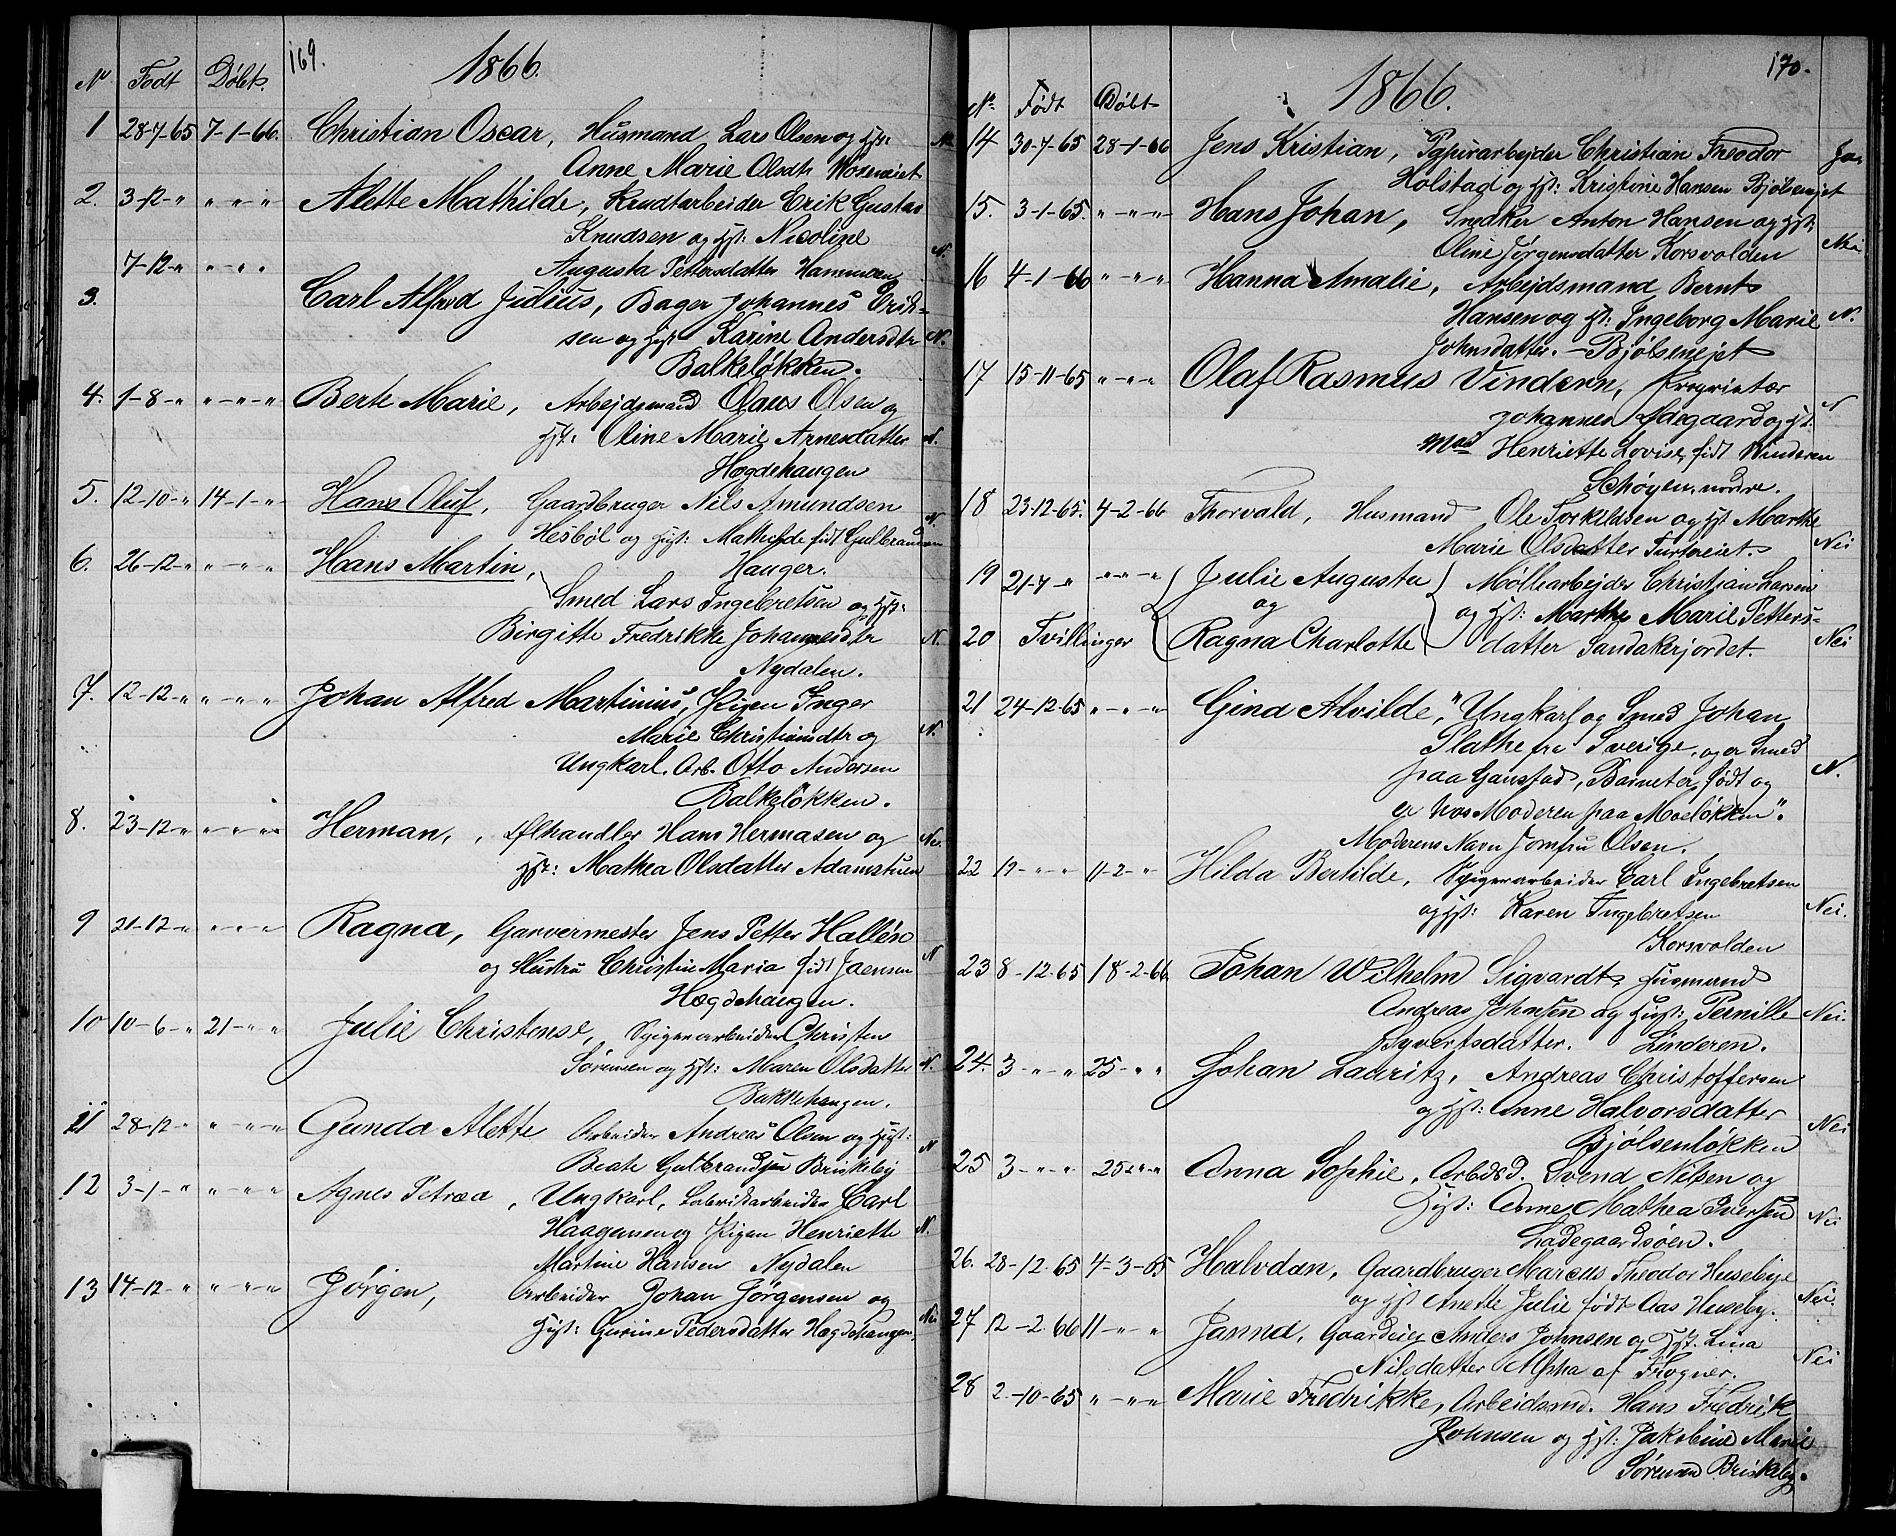 169.
1866.
No Født Døbt.
1 28-7-65 7-1-66. Christian Oscar, Husmand Lars Olsen og Hst: N.
Anne Marie Olsdtr
2. 3-12-" "-"-" Alette Mathilde, Krudtarbeider Erik Gustav
Knudsen og Hst: Nicoline N.
7-12-" "-"-" Augusta Pettersdatter Hammeren
3. Carl Alfred Julius, Bager Johannes Erik-
sen og Hst Karine Andersdtr N.
Balkeløkken.
4. 1-8-" "-"-" Berte Marie, Arbejdsmand Olaus Olsen og
Hst: Oline Marie Arnesdatter N.
Hægdehaugen
5. 12-10-" 14-1-" Hans Oluf, Gaardbruger Nils Amundsen N.
Hesbøl og Hst: Mathilde født Gulbrandsen
6. 26-12-" "-"-" Hans Martin, Hauger.
Smed Lars Ingebretsen og Hst:
Birgitte Fredrikke Johannesdtr N.
Nydalen.
7. 12-12-" "-"-" Johan Alfred Martinius, Pigen Inger
Marie Christiansdtr og N.
Ungkarl. Arb. Otto Andersen
Balkeløkken.
8. 23-12-" "-"-" Herman, Ølhandler Hans Hermasen og Nei
Hst: Mathea Olsdatter Adamstuen
9 21-12-" "-"-" Ragna, Garvermester Jens Petter Hallén
og Hustru Christin Maria født Jaensen N
Hægdehaugen.
10 10-6-" 21-"-" Julie Christense, Spigerarbeider Christen
Sørensen og Hst: Maren Olsdatter N.
Bakkehaugen.
11 28-12-" "-"-" Gunda Alette Arbeider Andreas Olsen og Hst: N
Beate Gulbrandsen Briskeby
12 3-1-" "-"-" Agnes Petrea, Ungkarl, Fabrikarbeider Carl
Haagensen og Pigen Henriette N.
Martine Hansen Nydalen
13 14-12-" "-"-" Jörgen, Arbeider Johan Jørgensen og
Hst: Gurine Pedersdatter Hægdehaugen. Nei
170.
1866.
No Født Døbt
14 30-7-65 28-1-66 Jens Kristian, Papirarbejder Christian Theodor Ja.
Holstad og Hst: Kristine Hansen Bjølsenejet
15. 3-1-65. "-"-" Hans Johan, Snedker Anton Hansen og Hst:
Oline Jørgensdatter Korsvolden Nei
16 4-1-66 "-"-" Hanna Amalie, Arbejdsmand Bernt
Hansen og Hst: Ingeborg Marie N.
Johnsdatter. - Bjølseneiet
17 15-11-65 "-"-" Olaf Rasmus Vindern, Proprietær
Johannes Ødegaard og Hst. N
Mad Henriette Lovise, født Winderen
Schøyen, nordre.
18 23-12-65. 4-2-66 Thorvald, Husmand Ole Torkildsen og Hst Marthe
Marie Olsdatter Nei
19 21-7-" "-"-" Julie Augusta Møllearbejder Christian Larsen
og og Hst: Marthe Marie Petters-
20 Tvillinger Ragna Charlotte datter Sandakerjordet. Nei
21 24-12-65 "-"-" Gina Alvilde, "Ungkarl og Smed Johan
Plathe fra Sverige, og er Smed
paa Gaustad, Barnet er født og N.
er hos Moderen paa Moeløkken".
Moderens Navn Jomfru Olsen.
22 17-"-" 11-2-" Hilda Bertilde, Spigerarbeider Carl Ingebretsen
og Hst: Karen Ingebretsen Nei.
Korsvolden
23 8-12-65 18-2-66 Johan Wilhelm Sigvardt, Husmand
Andreas Johnsen og Hust: Pernille Nei.
Syvertsdatter. Linderen.
24. 3-"-" 25-"-" Johan Lauritz, Andreas Christoffersen
og Hst: Anne Halvorsdatter
Bjølsenløkken Nei
25 3-"-" 25-"-" Anna Sophie, Arbdsd. Svend Nilsen og
Hst: Anne Mathea Iversen Nei
Ladegaardsøen.
26. 28-12-65 4-3-65 Halvdan, Gaardbruger Marcus Theodor Huseby
og Hst Anette Julie født Aas Huseby. Nei.
27 12-2 66 11-"-" Janna, Gaardeier Anders Johnsen og Hst. Lina
Nilsdatter Alpha af Frogner. Nei
28 2-10-65 "-"-" Marie Fredrikke, Arbeidsmd. Hans Fredrik
Johnsen og Hst: Jakobine Marie
Sørensen Briskeby.